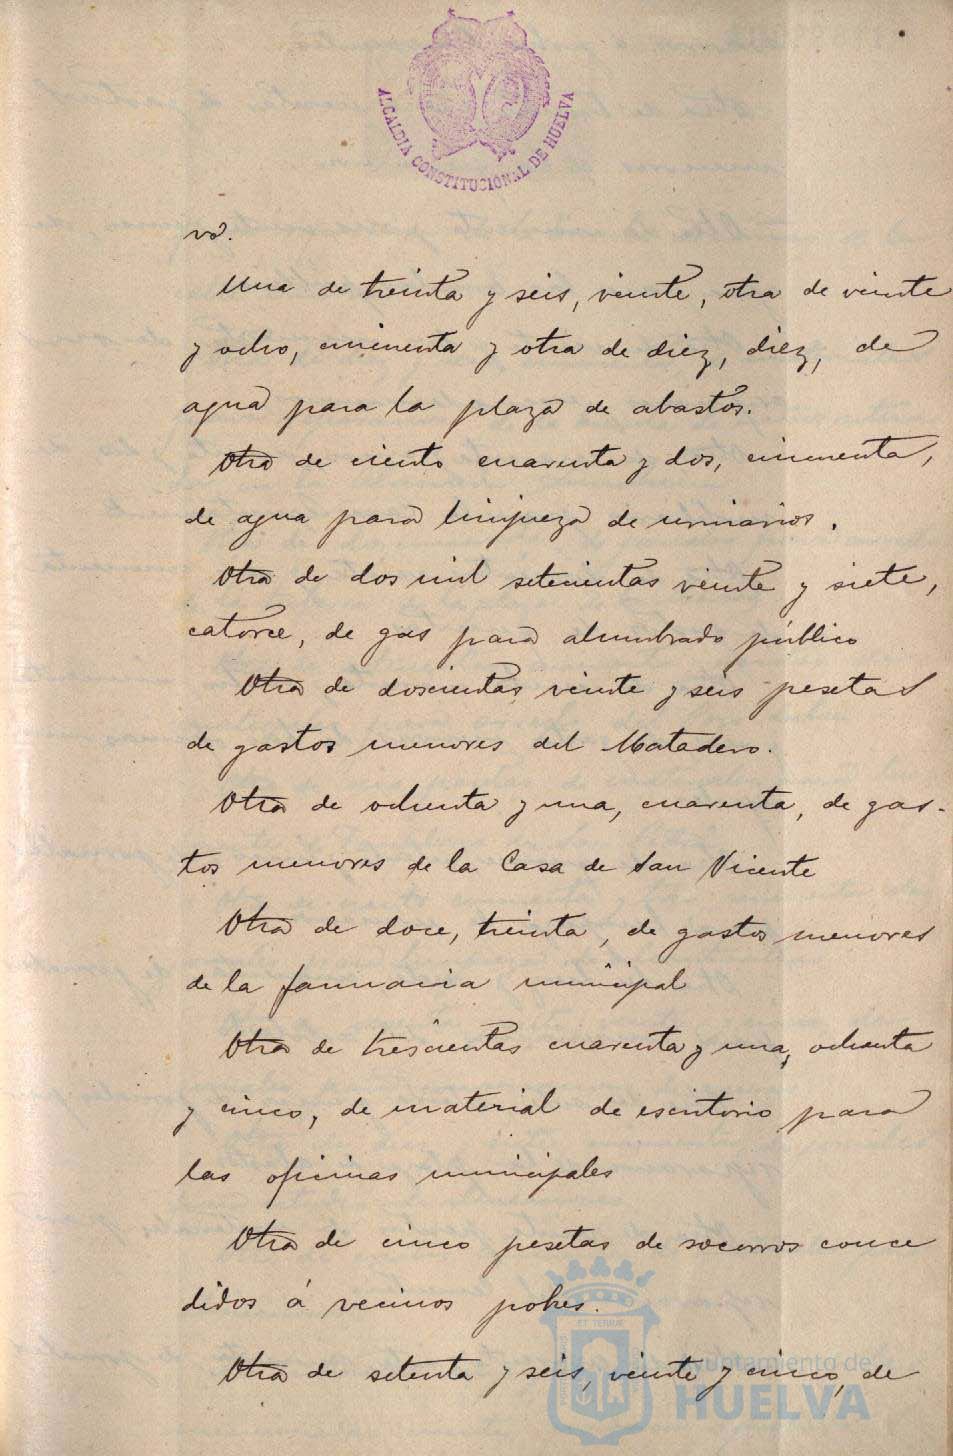 ALCALDIA CONSTITUCIONAL DE HUELVA
vo.
Una de treinta y seis, veinte, otra de veinte
y ocho, cincuenta y otra de diez, diez, de
agua para la plaza de abastos.
Otra de ciento cuarenta y dos, cincuenta,
de agua para limpieza de urinarios.
Otra de dos mil setecientas veinte y siete,
catorce, de gas para alumbrado público
Otra de doscientas veinte y seis pesetas
de gastos menores del Matadero.
Otra de ochenta y una, cuarenta, de gas-
tos menores de la Casa de San Vicente
Otra de doce, treinta, de gastos menores
de la farmacia municipal
Otra de trescientas cuarenta y una, ochenta
y cinco, de material de escritorio para
las oficinas municipales
Otra de cinco pesetas de socorros conce
didos á vecinos pobres.
Otra de setenta y seis, veinte y cinco, de
ayuntamiento de
HUELVA